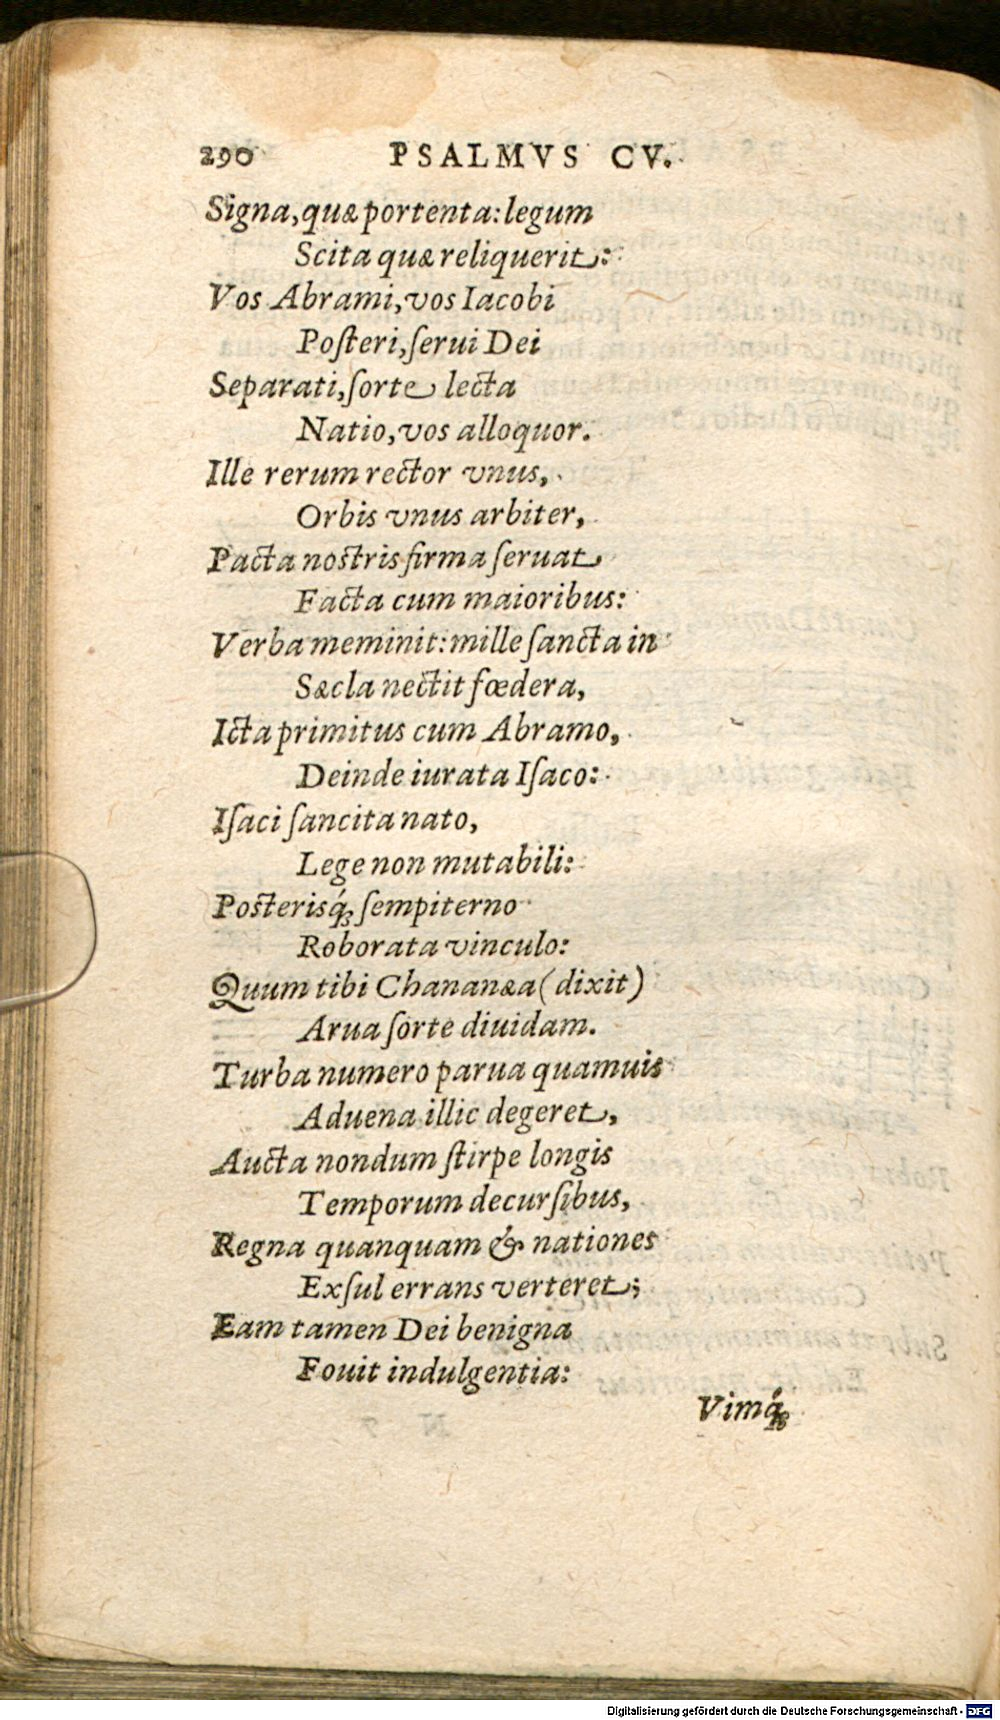 290 PSALMVS CV.
Signa, quæ portenta: legum
Scita quæ reliquerit:
Vos Abrami, vos Iacobi
Poſteri, ſerui Dei
Separati, ſorte lecta
Natio, vos alloquor.
Ille rerum rector vnus,
Orbis vnus arbiter,
Pacta nostris firma ſeruat
Facta cum maioribus:
Verba meminit: mille ſancta in
Sæcla nectit fœdera,
Icta primitus cum Abramo,
Deinde iurata Iſaco:
Iſaci ſancita nato,
Lege non mutabili:
Posterisq́ꝫ ſempiterno
Roborata vinculo:
Quum tibi Chananæa (dixit)
Arua ſorte diuidam.
Turba numero parua quamuis
Aduena illic degeret,
Aucta nondum ſtirpe longis
Temporum decurſibus,
Regna quanquam & nationes
Exſul errans verteret;
Eam tamen Dei benigna
Fouit indulgentia:
Vimq́ꝫ
Digitalisierung gefördert durch die Deutsche Forschungsgemeinschaft - DFG